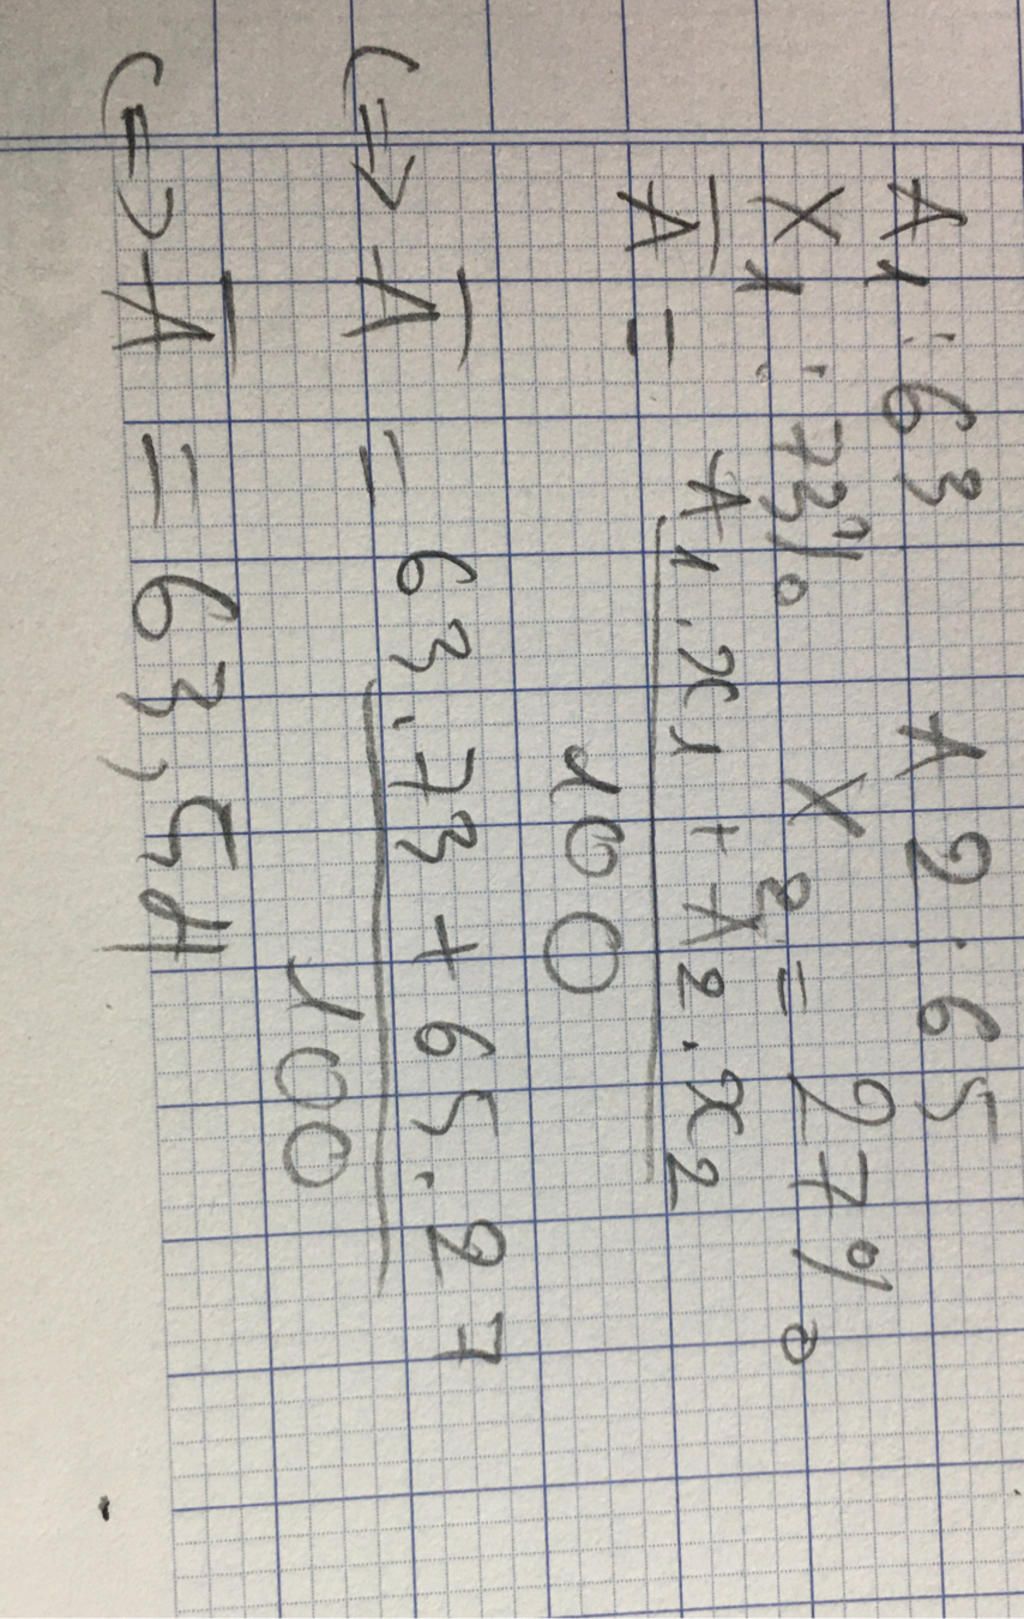 A1 : 63 A2 : 65
X1 : 73% X2 = 27%
A̅ = A1.x1 + A2.x2
100
(=> A̅ = 63.73 + 65.27
100
(=> A̅ = 63,54